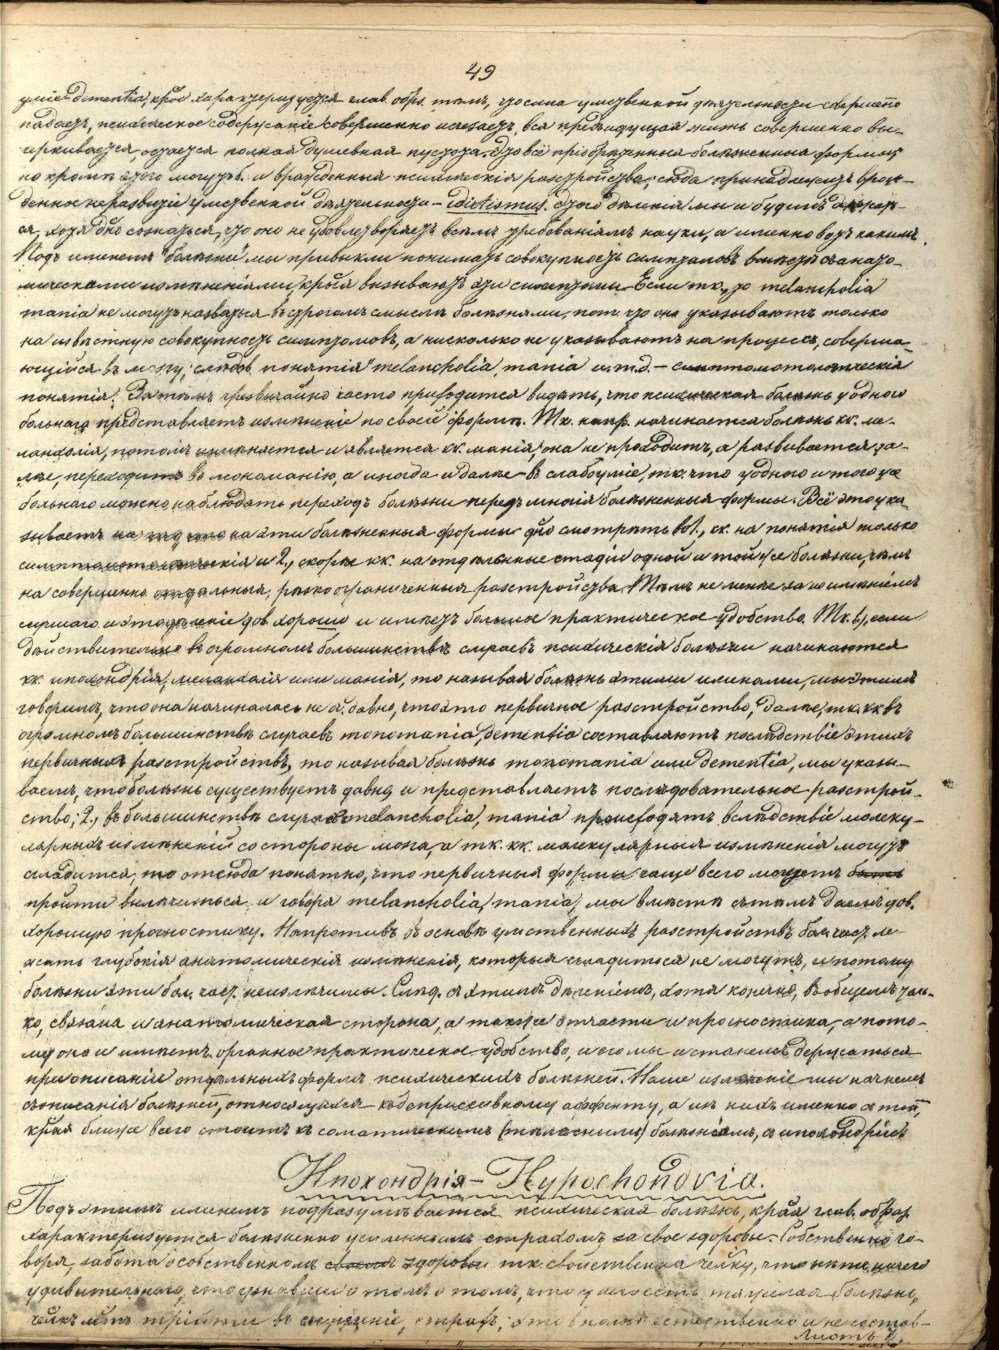 49
умie dementia, крое характеризуется глав. обр. тѣмъ, что сила умственной дѣятельности совершенно
падаетъ, психическое содержаніе совершенно исчезаетъ, вся предыдущая жизнь совершенно вы-
черкивается, остается полная душевная пустота. Это всё пріобрѣтенныя болѣзненныя формы,
но кромѣ этого могутъ б. и врожденныя психическія разстройства; сюда принадлежитъ врож-
денное неразвитіе умственной дѣятельности – idiotismus. Этого дѣленія мы и будемъ держать-
ся, хотя должно сознаться, что оно не удовлетворяетъ всѣмъ требованіямъ науки, а именно вотъ какимъ.
Подъ именемъ "болѣзни" мы привыкли понимать совокупность симптомовъ вмѣстѣ съ анато-
мическими измѣненіями, крыя вызываютъ эти симптомы. Если тк., то melancholia
mania не могутъ назваться въ строгомъ смыслѣ болѣзнями, пот. что онѣ указываютъ только
на извѣстную совокупность симптомовъ, а нисколько не указываютъ на процессъ, соверша-
ющійся въ мозгу; слѣдов. понятія "melancholia, mania и. т. д. – симптоматологическія
понятія. Затѣмъ чрезвычайно часто приходится видѣть, что психическая болѣзнь у одного
больнаго представляетъ измѣненіе по своей формѣ. Тк. напр. начинается болѣзнь кк. ме-
ланхолія, потомъ измѣняется и является кк. манія; она не проходитъ, а развивается да-
лѣе, переходитъ въ мономанію, а иногда и далѣе – въ слабоуміе, тк. что у одного и того же
больнаго можно наблюдать переходъ болѣзни чрезъ многія болѣзненныя формы. Всё это ука
зываетъ на то, что на эти болѣзненныя формы должно смотрѣть 1., ск. на понятія только
симптоматологическія и 2., скорѣе кк. на отдѣльныя стадіи одной и той же болѣзни, чѣмъ
на совершенно отдѣльныя, рѣзко ограниченныя разстройства. Тѣмъ не менѣе за неимѣніемъ
лучшаго и это дѣленіе дов. хорошо и имѣетъ большое практическое удобство. Тк. 1), если
дѣйствительно въ огромномъ большинствѣ случаевъ психическія болѣзни начинаются
кк. ипохондрія, меланхолія или манія, то называя болѣзнь этими именами, мы этимъ
говоримъ, что она началась недавно, что это первичное разстройство, далѣе, тк. кк въ
огромномъ большинствѣ случаевъ monomania, dementia составляютъ послѣдствіе этихъ
первичныхъ разстройствъ, то называя болѣзнь monomania или dementia, мы указы-
ваемъ, что болѣзнь существуетъ давно и представляетъ послѣдовательное разстрой-
ство; 2., въ большинствѣ случаевъ melancholia, mania происходятъ вслѣдствіе молеку-
лярныхъ измѣненій со стороны мозга, а тк. кк. молекулярныя измѣненія могутъ
сгладиться, то отсюда понятно, что первичныя формы чаще всего могутъ
пройти вылѣчиться, и говоря melancholia, mania, мы вмѣстѣ съ тѣмъ даемъ дов.
хорошую прогностику. Напротивъ въ основѣ умственныхъ разстройствъ бол. част. ле-
жатъ глубокія анатомическія измѣненія, которыя сгладиться не могутъ, и потому
болѣзни эти бол. част. неизлѣчимы. Слѣд. съ этимъ дѣленіемъ, хотя конечно, въ общемъ толь-
ко, связана и анатомическая сторона, а также отчасти и прогностика, а пото-
му оно и имѣетъ огромное практическое удобство, и его мы и станемъ держаться
при описаніи отдѣльныхъ формъ психическихъ болѣзней. Наше изложеніе мы начнемъ
съ описанія болѣзней, относящихся къ депрессивному аффекту, а изъ нихъ именно съ той,
края ближе всего стоитъ къ соматическимъ (тѣлеснымъ) болѣзнямъ, съ ипохондріи.
Ипохондрія – Hypochondria.
Подъ этимъ именемъ подразумѣвается психическая болѣзнь, края глав. образ.
характеризуется болѣзненно усиленнымъ страхомъ за свое здоровье. Собственно го-
воря, забота о собственномъ здоровьи тк. свойственна челку, что нѣтъ ничего
удивительнаго, что узнавши о томъ, что у него есть тяжелая болѣзнь,
челкъ можетъ прійти въ смущеніе, страхъ; это вполнѣ естественно и не состав-
Листъ 7.